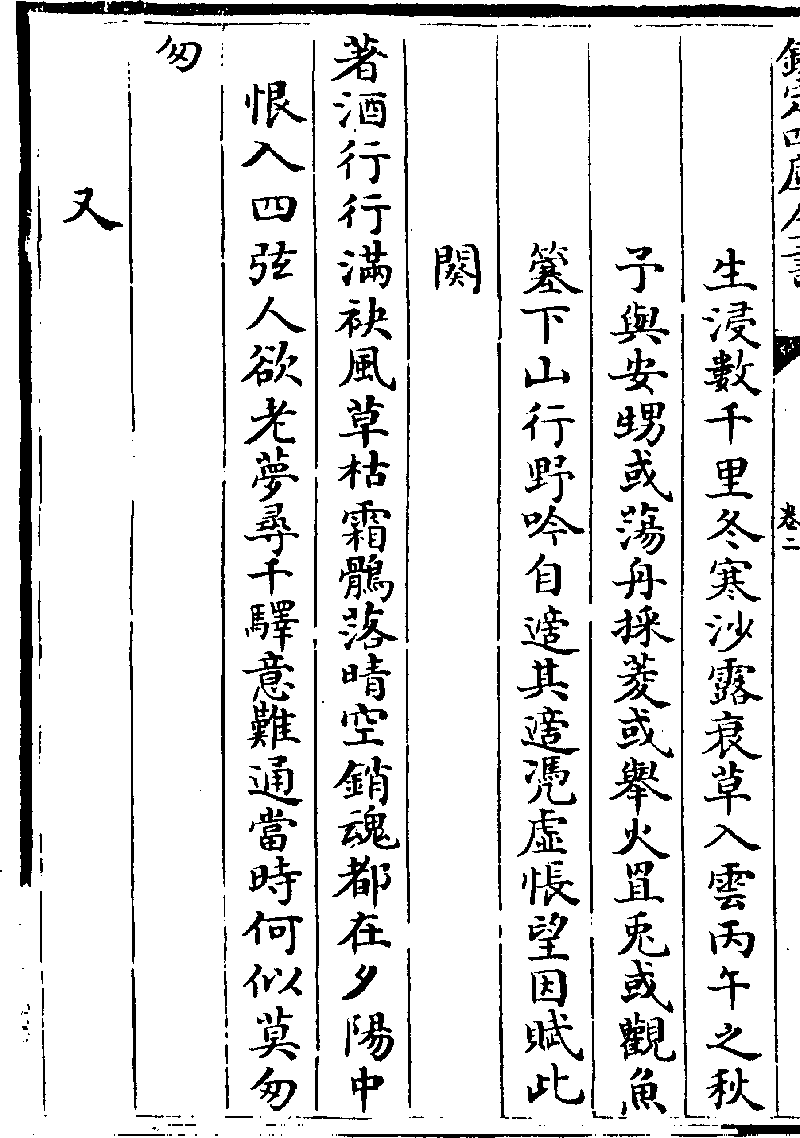 欽定四庫全書
卷二
生浸數千里冬寒沙露衰草入雲丙午之秋
予與安甥或蕩舟採菱或舉火罝兎或觀魚
簺下山行野吟自適其適凴虛悵望因賦此
闋
著酒行行滿袂風草枯霜鶻落晴空銷魂都在夕陽中
恨入四弦人欲老夢尋千驛意難通當時何似莫匆
匆
又